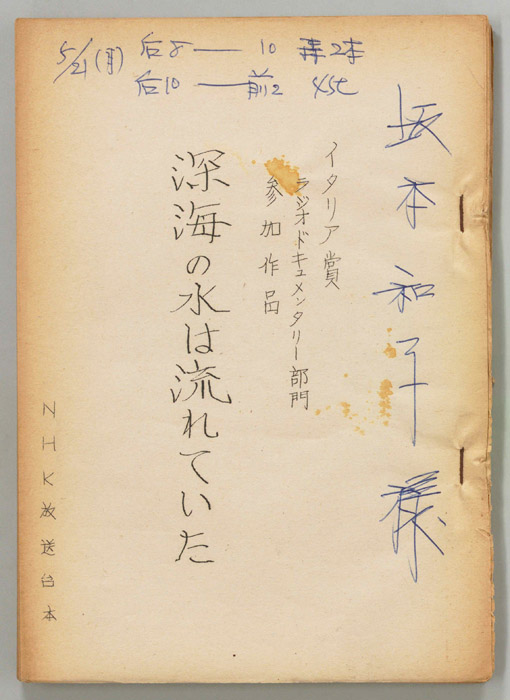 5/21(月) 后8 — 10 本2本
后10 — 前2 45t
坂本和子様
イタリア賞
ラジオドキュメンタリー部門
参加作品
深海の水は流れていた
NHK放送台本